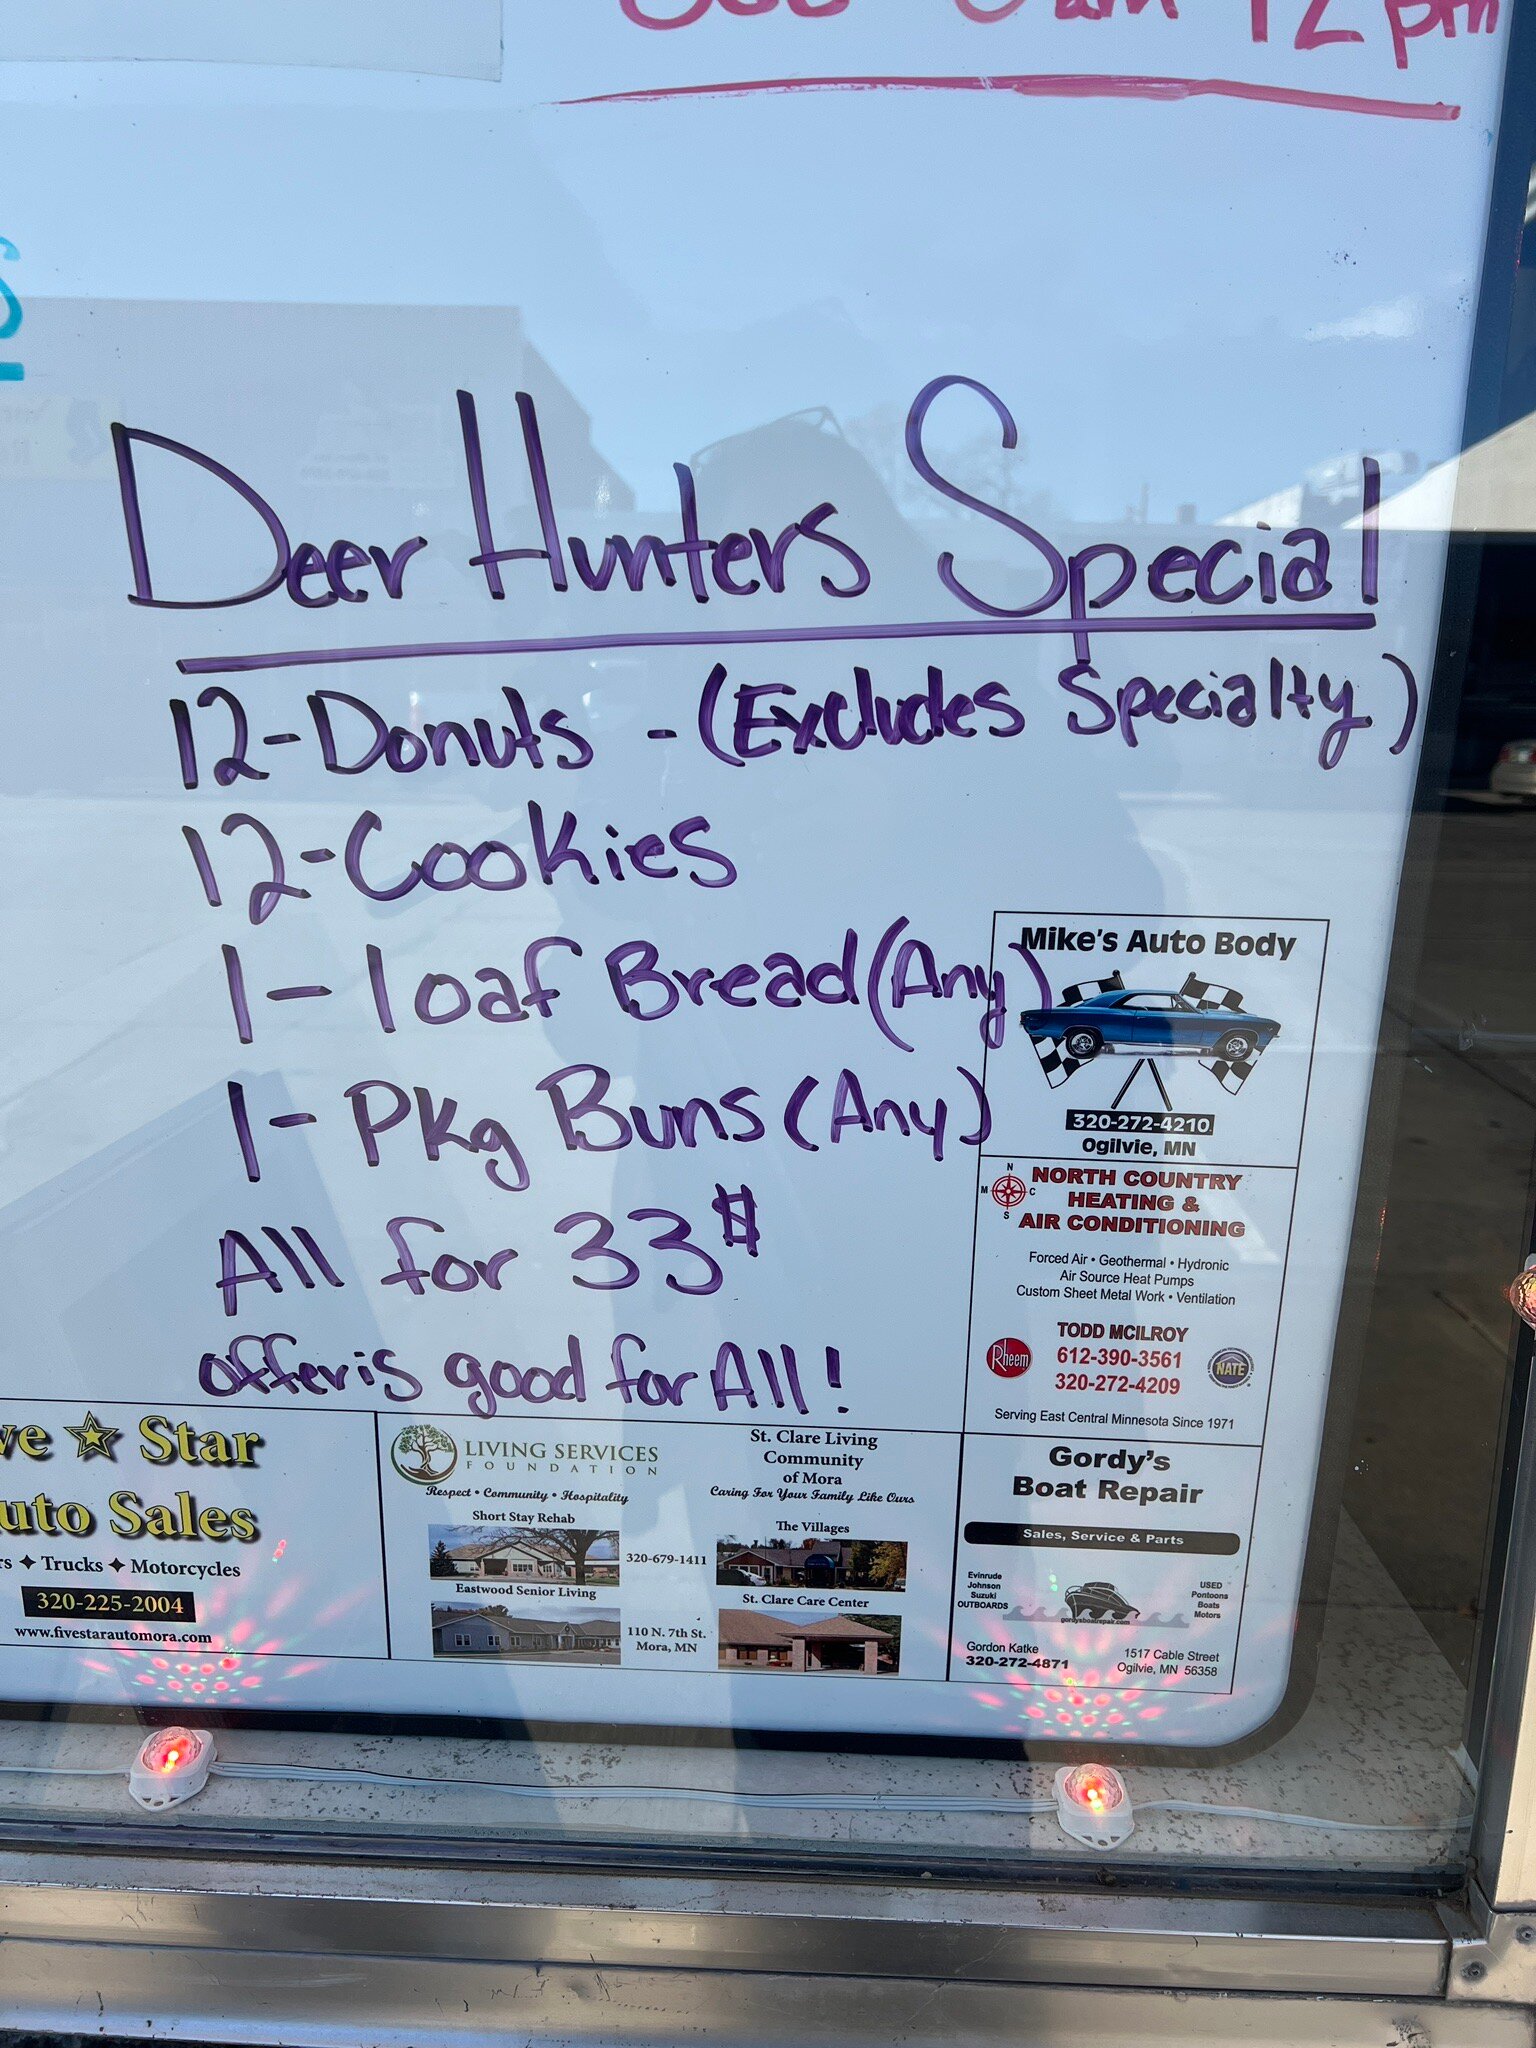 12 pm
Deer Hunters Special
12-Donuts - (Excludes Specialty)
12-Cookies
1-loaf Bread (Any)
1-Pkg Buns (Any)
All for 33$
offer is good for All!
Mike's Auto Body
320-272-4210
Ogilvie, MN
N
M C
S
NORTH COUNTRY
HEATING &
AIR CONDITIONING
Forced Air • Geothermal • Hydronic
Air Source Heat Pumps
Custom Sheet Metal Work • Ventilation
TODD MCILROY
Rheem
612-390-3561
NATE
320-272-4209
Serving East Central Minnesota Since 1971
ve Star
uto Sales
rs ✦ Trucks ✦ Motorcycles
320-225-2004
www.fivestarautomora.com
LIVING SERVICES
FOUNDATION
Respect • Community • Hospitality
Short Stay Rehab
Eastwood Senior Living
320-679-1411
110 N. 7th St.
Mora, MN
St. Clare Living
Community
of Mora
Caring For Your Family Like Ours
The Villages
St. Clare Care Center
Gordy's
Boat Repair
Sales, Service & Parts
Evinrude
Johnson
Suzuki
OUTBOARDS
gordysboatrepair.com
USED
Pontoons
Boats
Motors
Gordon Katke
320-272-4871
1517 Cable Street
Ogilvie, MN 56358